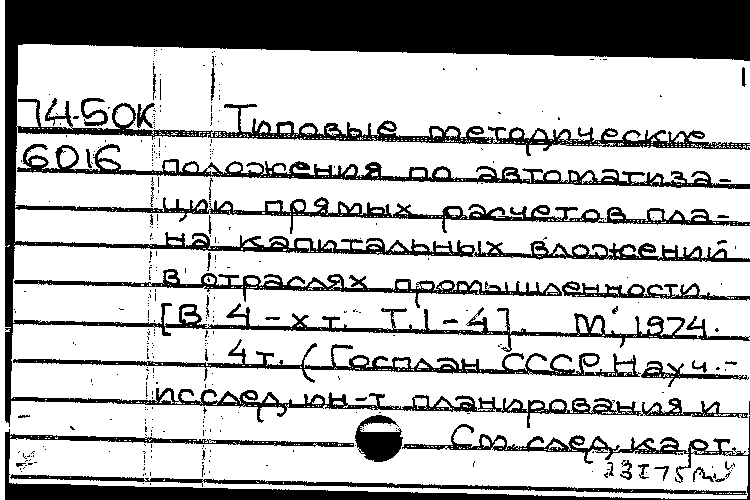 74-50К Типовые методические
6016 положения по автоматиза-
ции прямых расчетов пла-
на капитальных вложений
в отраслях промышленности.
[В 4-х т. Т. 1-4]. М., 1974.
4 т. (Госплан СССР. Науч.-
исслед. ин-т планирования и
См. след. карт.